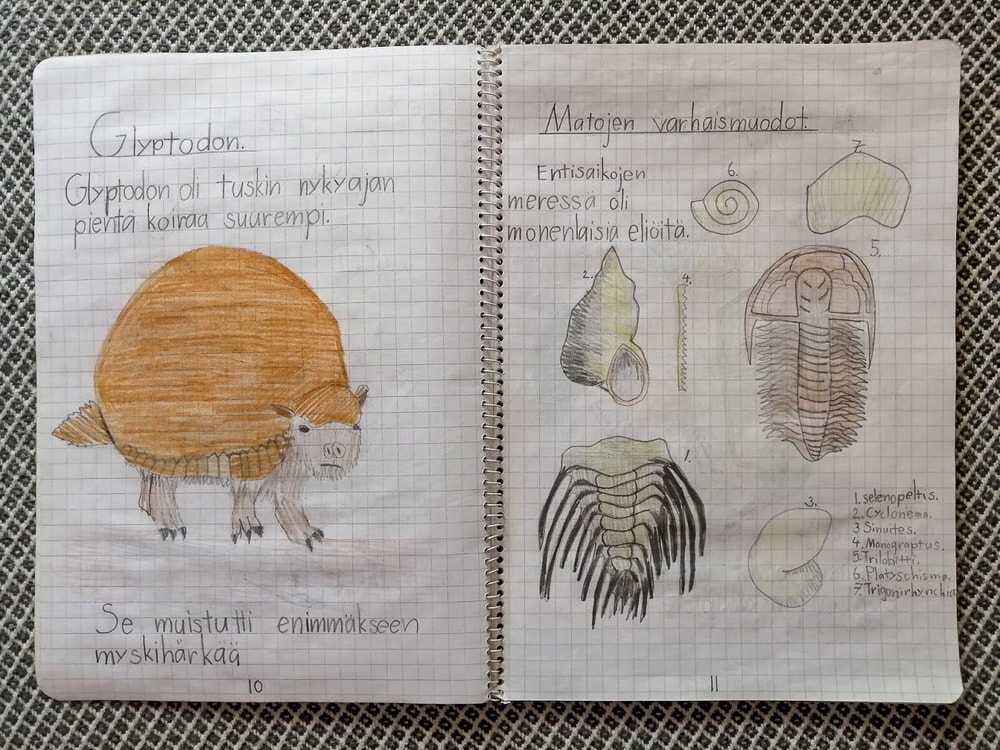 Glyptodon.
Glyptodon oli tuskin nykyajan
pientä koiraa suurempi.
Se muistutti enimmäkseen
myskihärkää
10
Matojen varhaismuodot.
Entisaikojen
meressä oli
monenlaisia eliöitä.
6.
7.
2.
4.
5.
1.
3.
1. selenopeltis.
2. Cyclonema.
3 Sinuites.
4. Monograptus.
5. Trilobiitti.
6. Platyschisma.
7. Trigonirhynchia
11